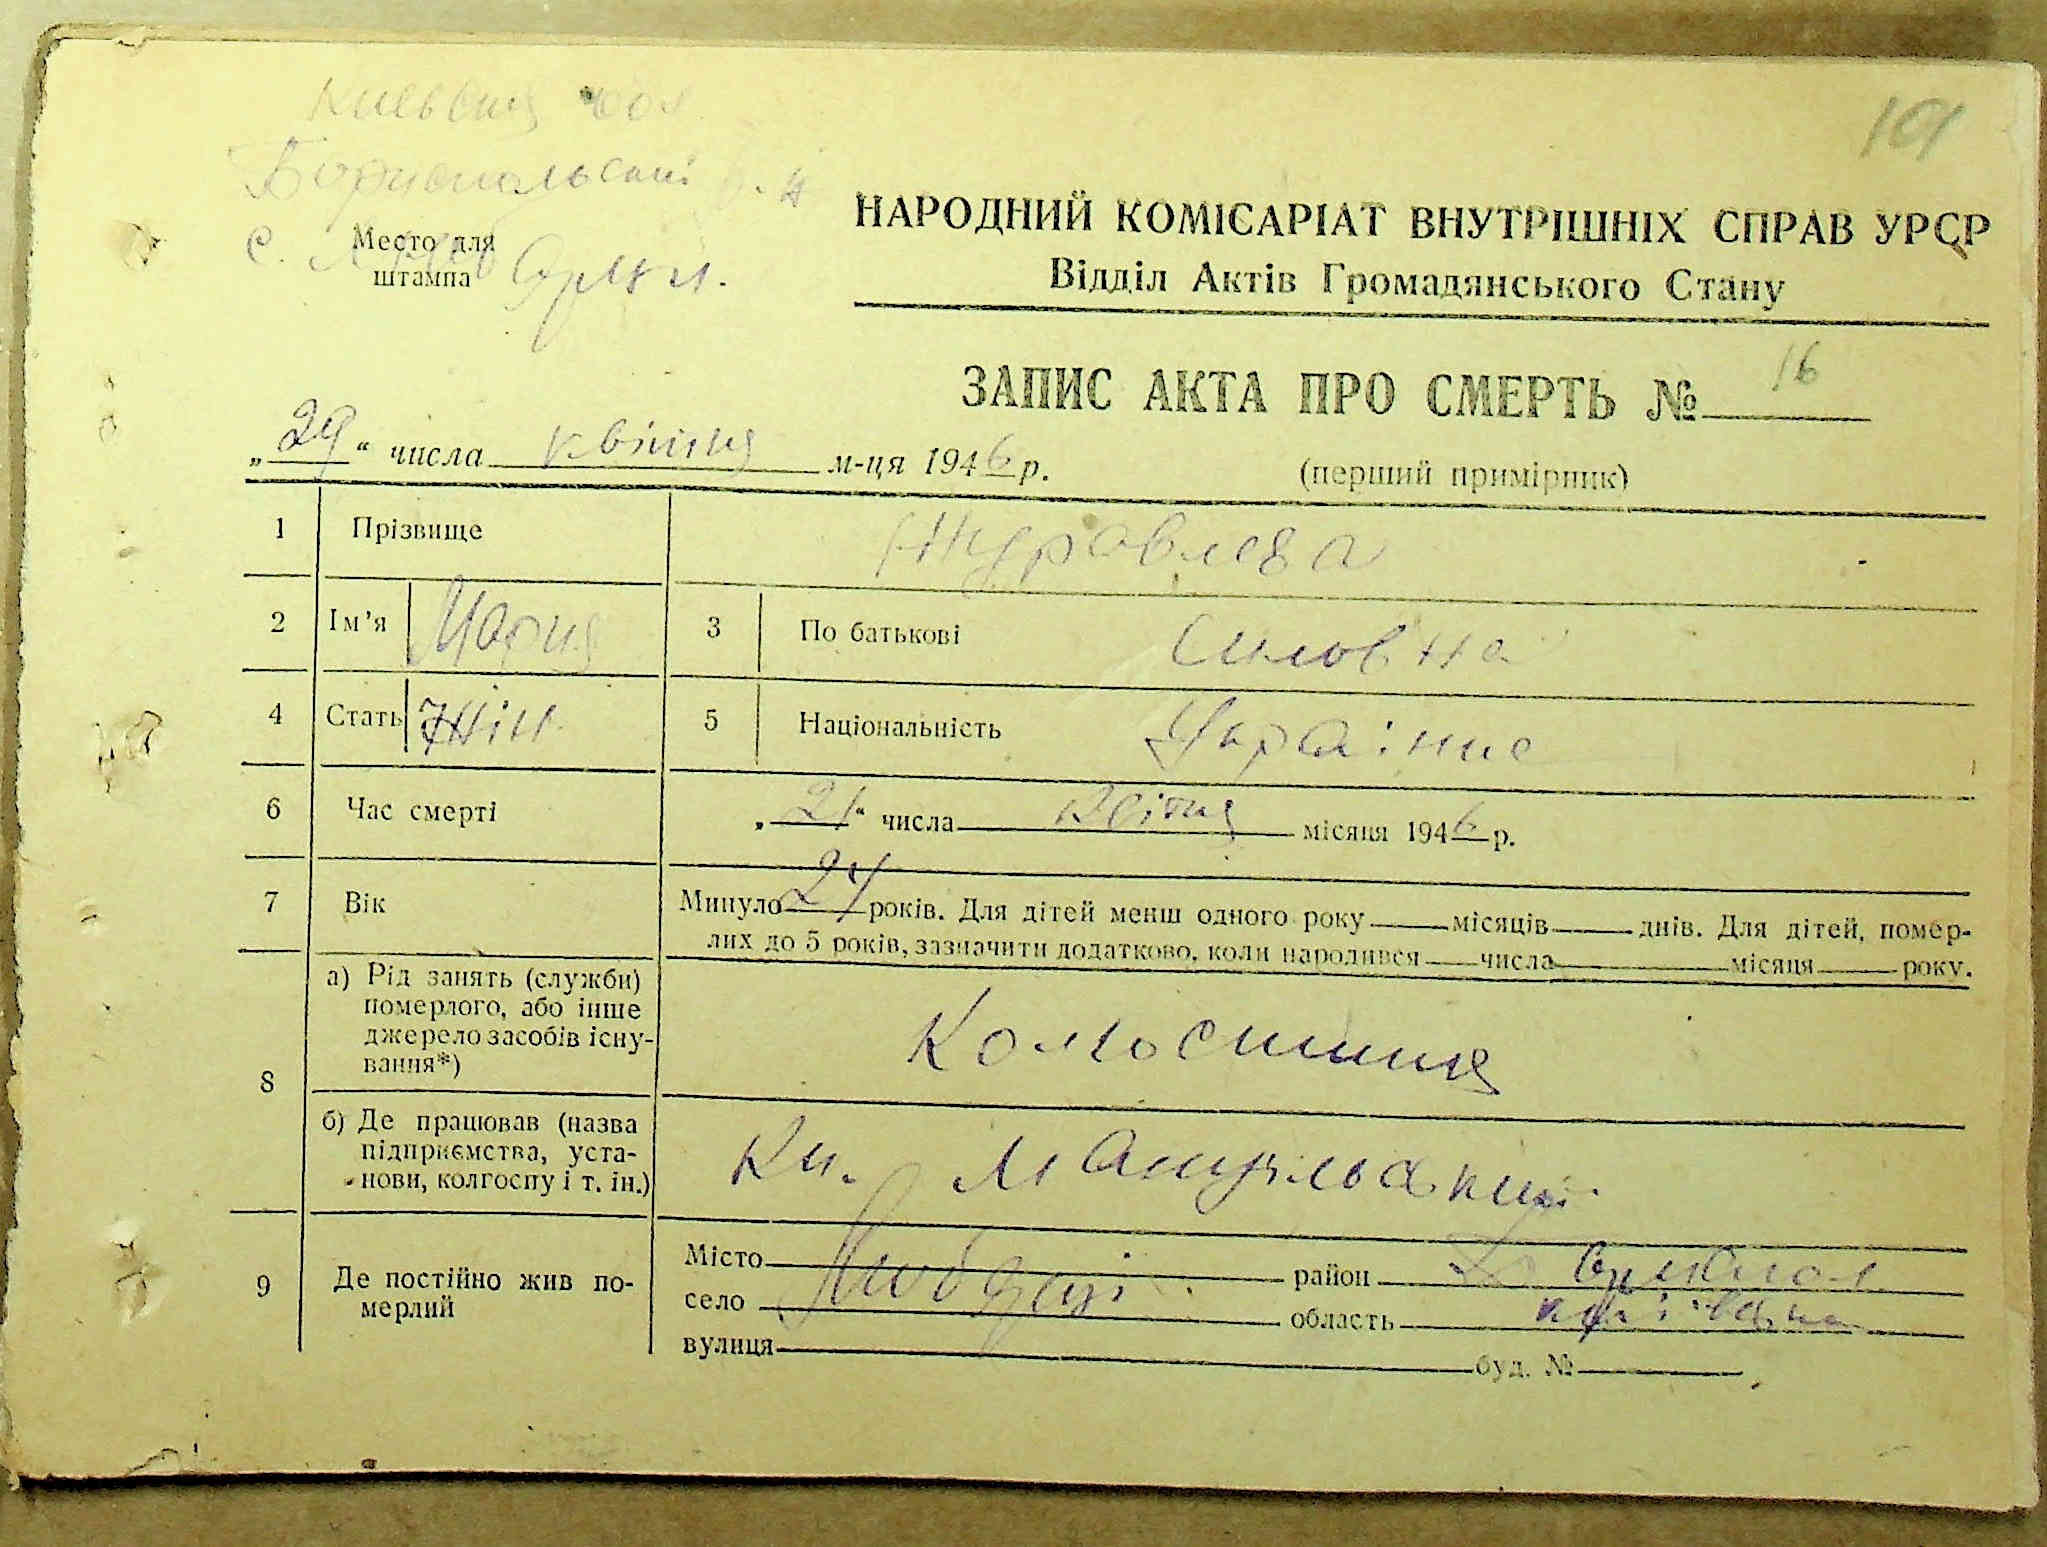 101
Бориспольський р-н
с.
Место для
штампа
НАРОДНИЙ КОМІСАРІАТ ВНУТРІШНІХ СПРАВ УРСР
Відділ Актів Громадянського Стану
ЗАПИС АКТА ПРО СМЕРТЬ № 16
„29“ числа квітня м-ця 1946 р.
(перший примірник)
1 Прізвище Журавлева
2 Ім’я Мария 3 По батькові
4 Стать Жін. 5 Національність
6 Час смерті „21“ числа квітня місяця 1946 р.
7 Вік Минуло 24 років. Для дітей менш одного року місяців днів. Для дітей, помер-
лих до 5 років, зазначити додатково, коли народився числа місяця року.
8 а) Рід занять (служби)
померлого, або інше
джерело засобів існу-
вання*)
б) Де працював (назва
підприємства, уста-
нови, колгоспу і т. ін.)
9 Де постійно жив по-
мерлий
Місто район
село область
вулиця буд. №